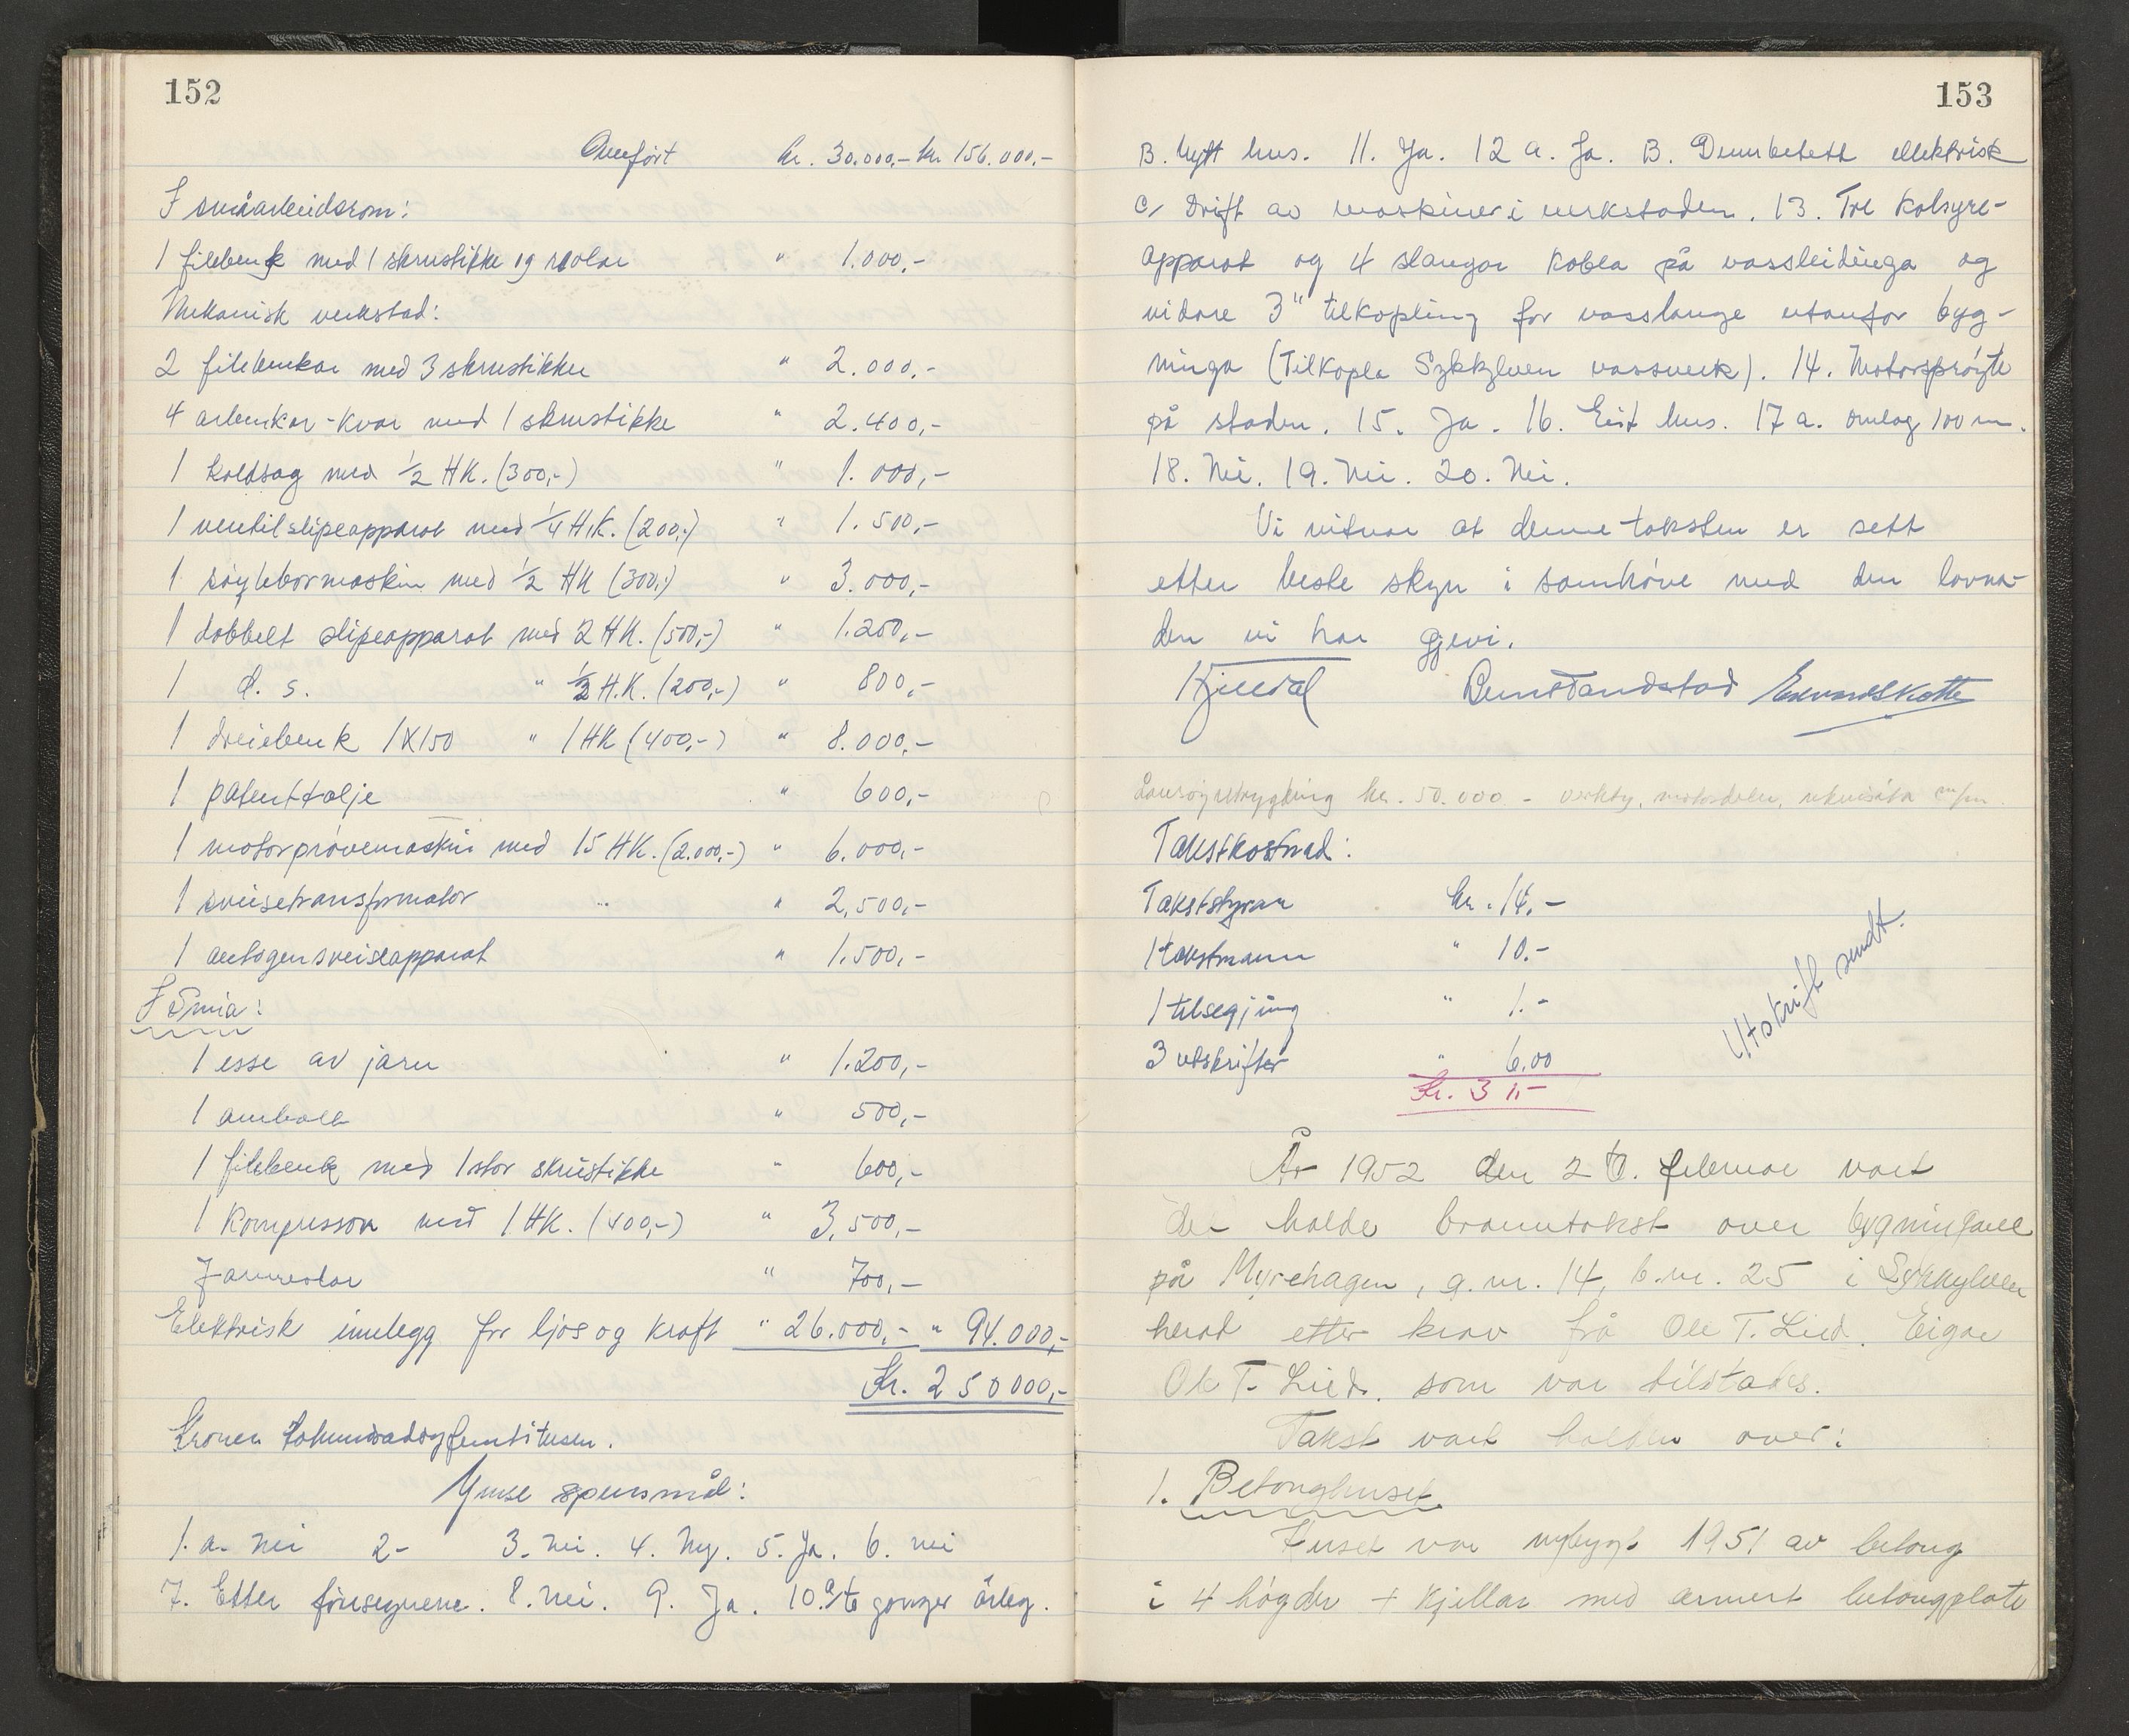 152
Overført kr. 30.000,- kr 156.000,-
I småarbeidsrom:
1 filebenk med 1 skrustikke og reolar " 1.000,-
Mekanisk verkstad:
2 filebenkar med 3 skrustikker " 2.000,-
4 arbenkar - kvar med 1 skrustikke " 2.400,-
1 koldsag med 1/2 HK. (300,-) " 1.000,-
1 ventilslipeapparat med 1/4 H.K. (200,-) " 1.500,-
1 søyleboremaskin med 1/2 HK (300,-) " 3.000,-
1 dobbelt slipeapparat med 2 HK. (500,-) " 1.200,-
1 d. s. " 1/2 H.K. (200,-) " 800,-
1 dreiebenk 1X150 " 1 HK (400,-) " 8.000,-
1 patenttalje " 600,-
1 motorprøvemaskin med 15 HK. (2.000,-) " 6.000,-
1 sveisetransformator " 2,500,-
1 autogensveiseapparat " 1.500,-
I Smia:
1 esse av jarn " 1.200,-
1 ambolt " 500,-
1 filebenk med 1 stor skrustikke " 600,-
1 Kompressor med 1 HK. (400,-) " 3,500,-
Jarnreolar " 700,-
Elektrisk innlegg for ljos og kraft " 26.000,- " 94.000,-
Kr. 250000,-
Kroner tohundradogfemtitusen.
Ymse spursmål:
1. a. Nei 2- 3. Nei. 4. Ny. 5. Ja. 6. nei
7. Etter forsegnene. 8. nei. 9. Ja. 10. a/ to gonger årleg.
153
B. Nytt hus. 11. Ja. 12 a. Ja. B. ellektrisk
c/ Drift av maskiner i verkstaden. 13. Tre Kolsyre-
apparat og 4 slangar kobla på vassleidinga og
vidare 3" tilkopling for vasslange utanfor byg-
ninga (Tilkopla Sykkylven vassverk). 14. Motorsprøyte
på staden. 15. Ja. 16. Eit hus. 17 a. omlag 100 m.
18. Nei. 19. Nei. 20. Nei.
Vi vitnar at denne taksten er sett
etter beste skyn i samhøve med den lovna-
den vi har gjevi.
kr. 50.000 - verkty, motordelar,
Takstkostnad:
Takststyrar kr. 14.-
1 takstmann " 10.-
1 tilsegjing " 1.-
3 utskrifter " 6.00
Kr. 31,-
Utskrift sendt.
År 1952 den februar vart
det halde branntakst over bygningane
på Myrehagen, g.nr. 14, b.nr. 25 i Sykkylven
herad etter krav frå Ole T. Lied. Eigar
Ole T. Lied. som var tilstades.
Takst vart halden over:
1. Betonghuset.
Huset var nybygt 1951 av betong
i 4 høgder + kjellar med armert betongplate